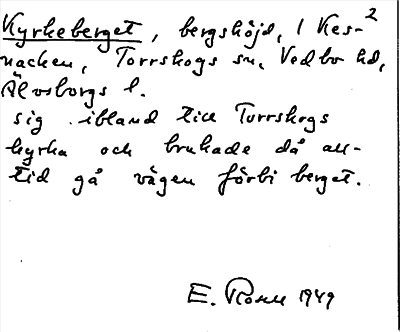 Kyrkeberget, bergshöjd, / Kes-2
nacken, Torrskogs sn, Vedbo hd,
Älvsborgs l.
sig ibland till Torrskogs
kyrka och brukade då all-
tid gå vägen förbi berget.
E. Rosell 1949